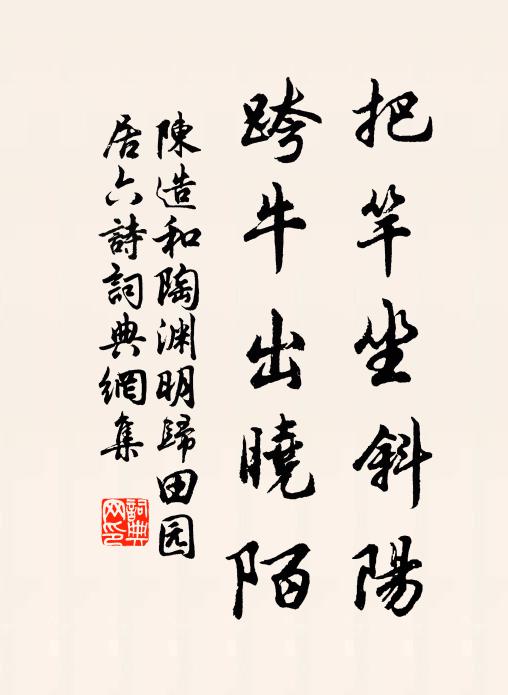 把竿坐斜陽
跨牛出曉陌
陳造和陶淵明歸田园
居六詩詞典網集
詞典
网印